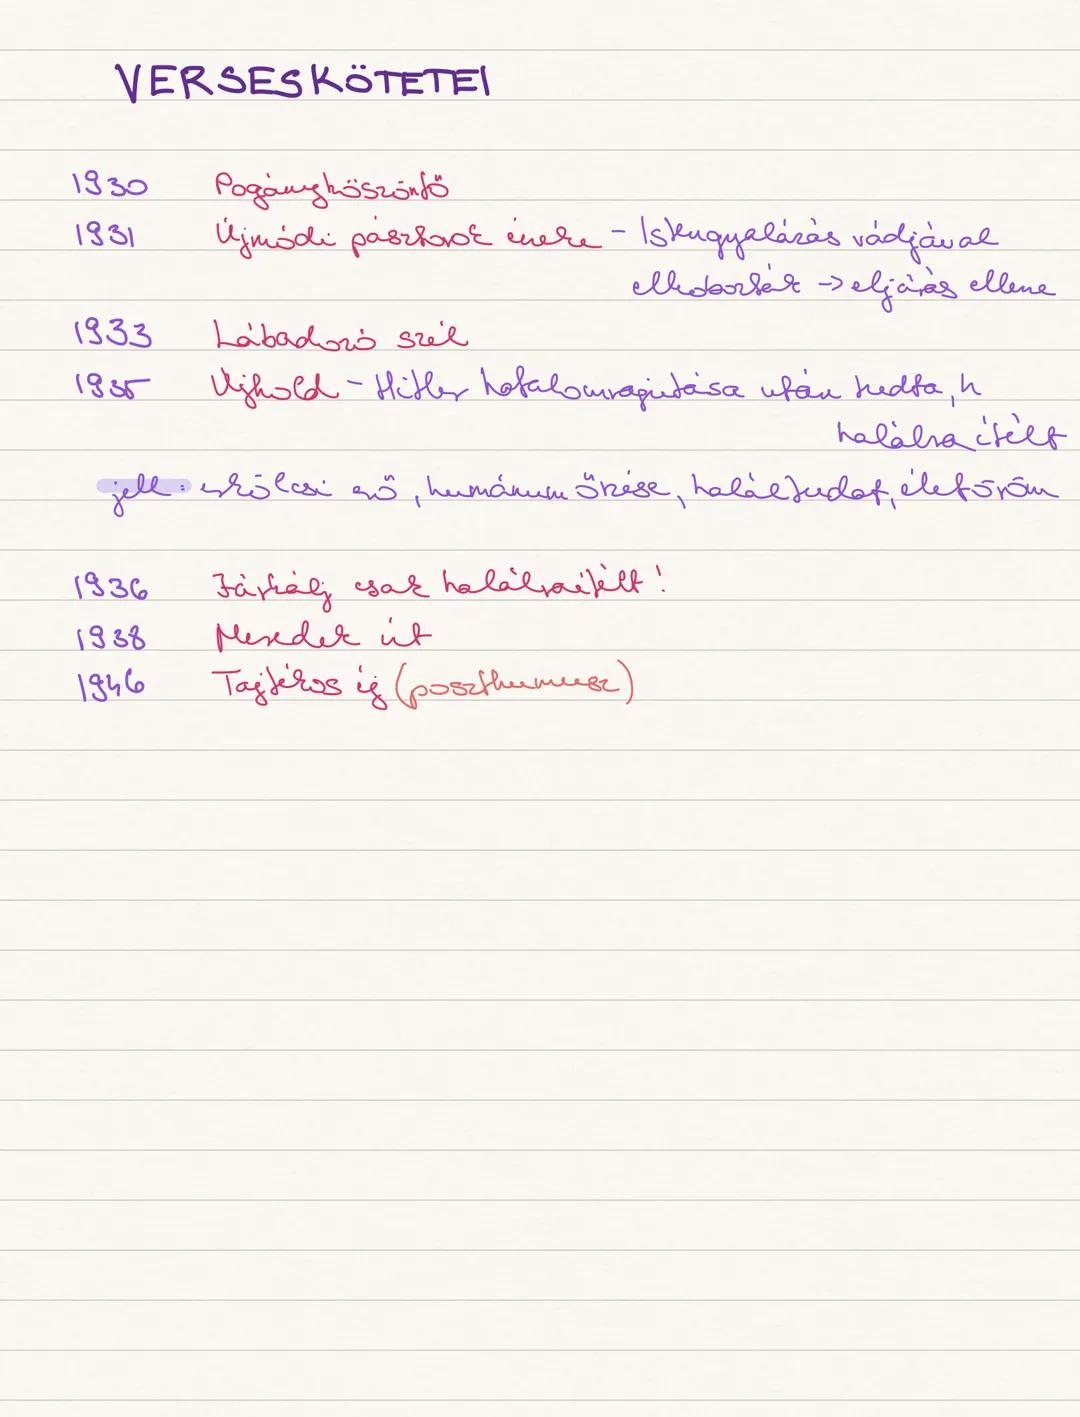 VERSESKÖTETEI
1930 Pogányköszöntő
1931 Újmódi pásztorok éneke - Istengyalázás vádjával
elkobozták -> eljárás ellene
1933 Lábadozó szél
1935 Újhold - Hitler hatalomragadása után tudta, h
halálra ítélt
jell: erkölcsi erő, humánum őrzése, haláltudat, életöröm
1936 Járkálj csak halálraítélt!
1938 Meredek út
1946 Tajtékos ég (poszthumusz)